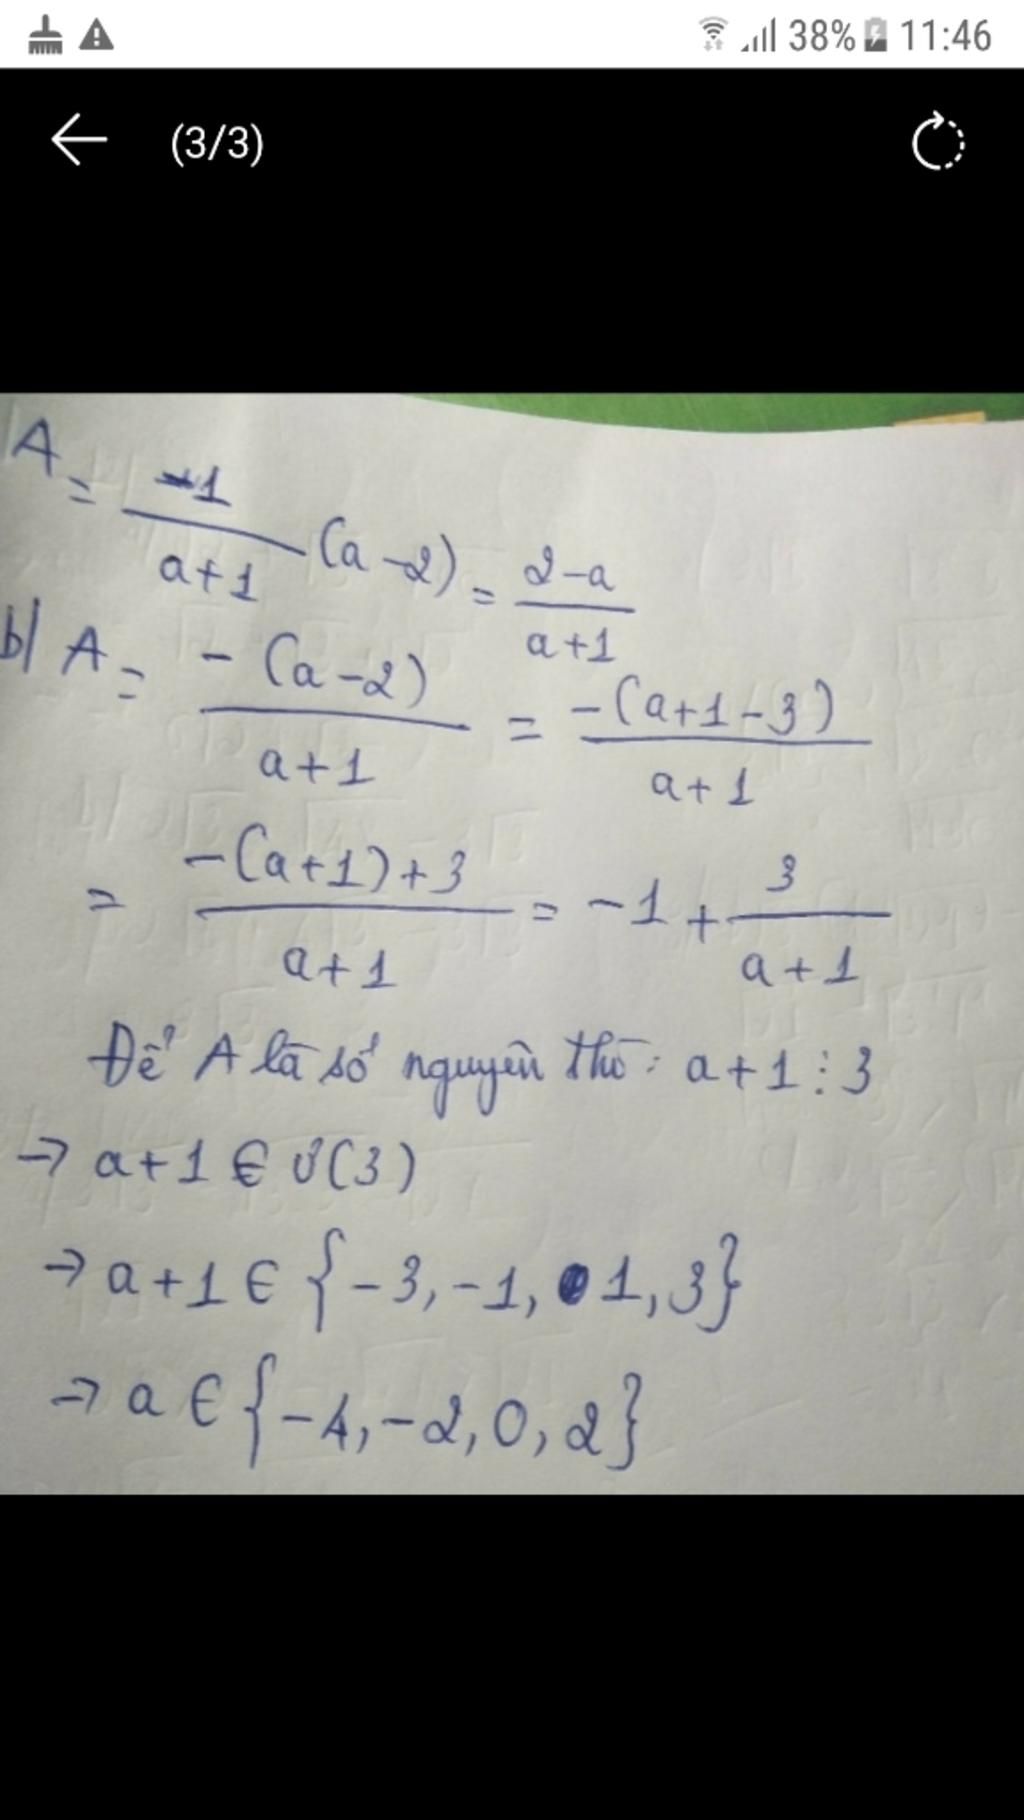 38% 11:46
(3/3)
A = -1/(a+1) (a-2) = (2-a)/(a+1)
b/ A = -(a-2)/(a+1) = -(a+1-3)/(a+1)
= (-(a+1)+3)/(a+1) = -1 + 3/(a+1)
Để A là số nguyên thì: a+1⋮3
→ a+1 ∈ Ư(3)
→ a+1 ∈ {-3, -1, 1, 3}
→ a ∈ {-4, -2, 0, 2}